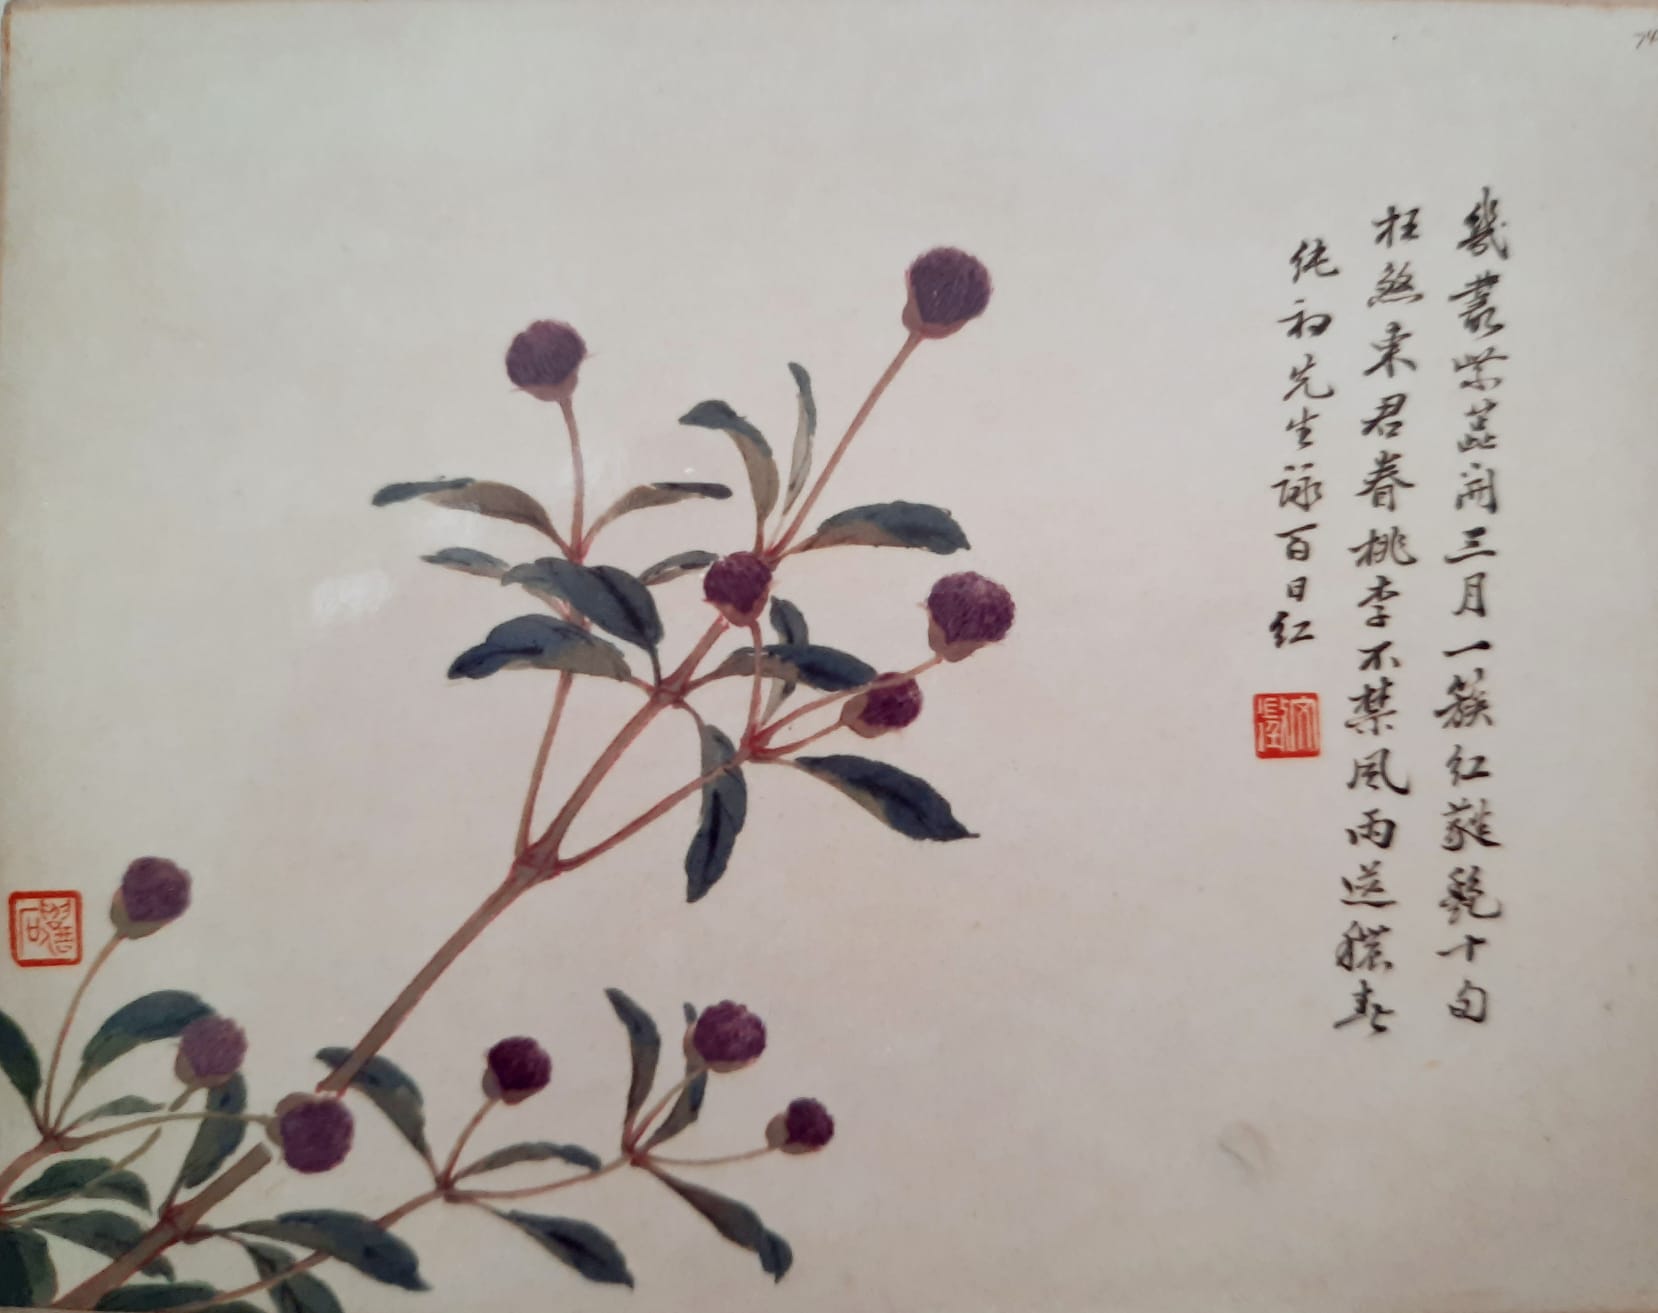 幾叢紫蕊開三月一簇紅蕤艷十旬
枉煞東君眷桃李不禁風雨送穠春
純初先生詠百日紅